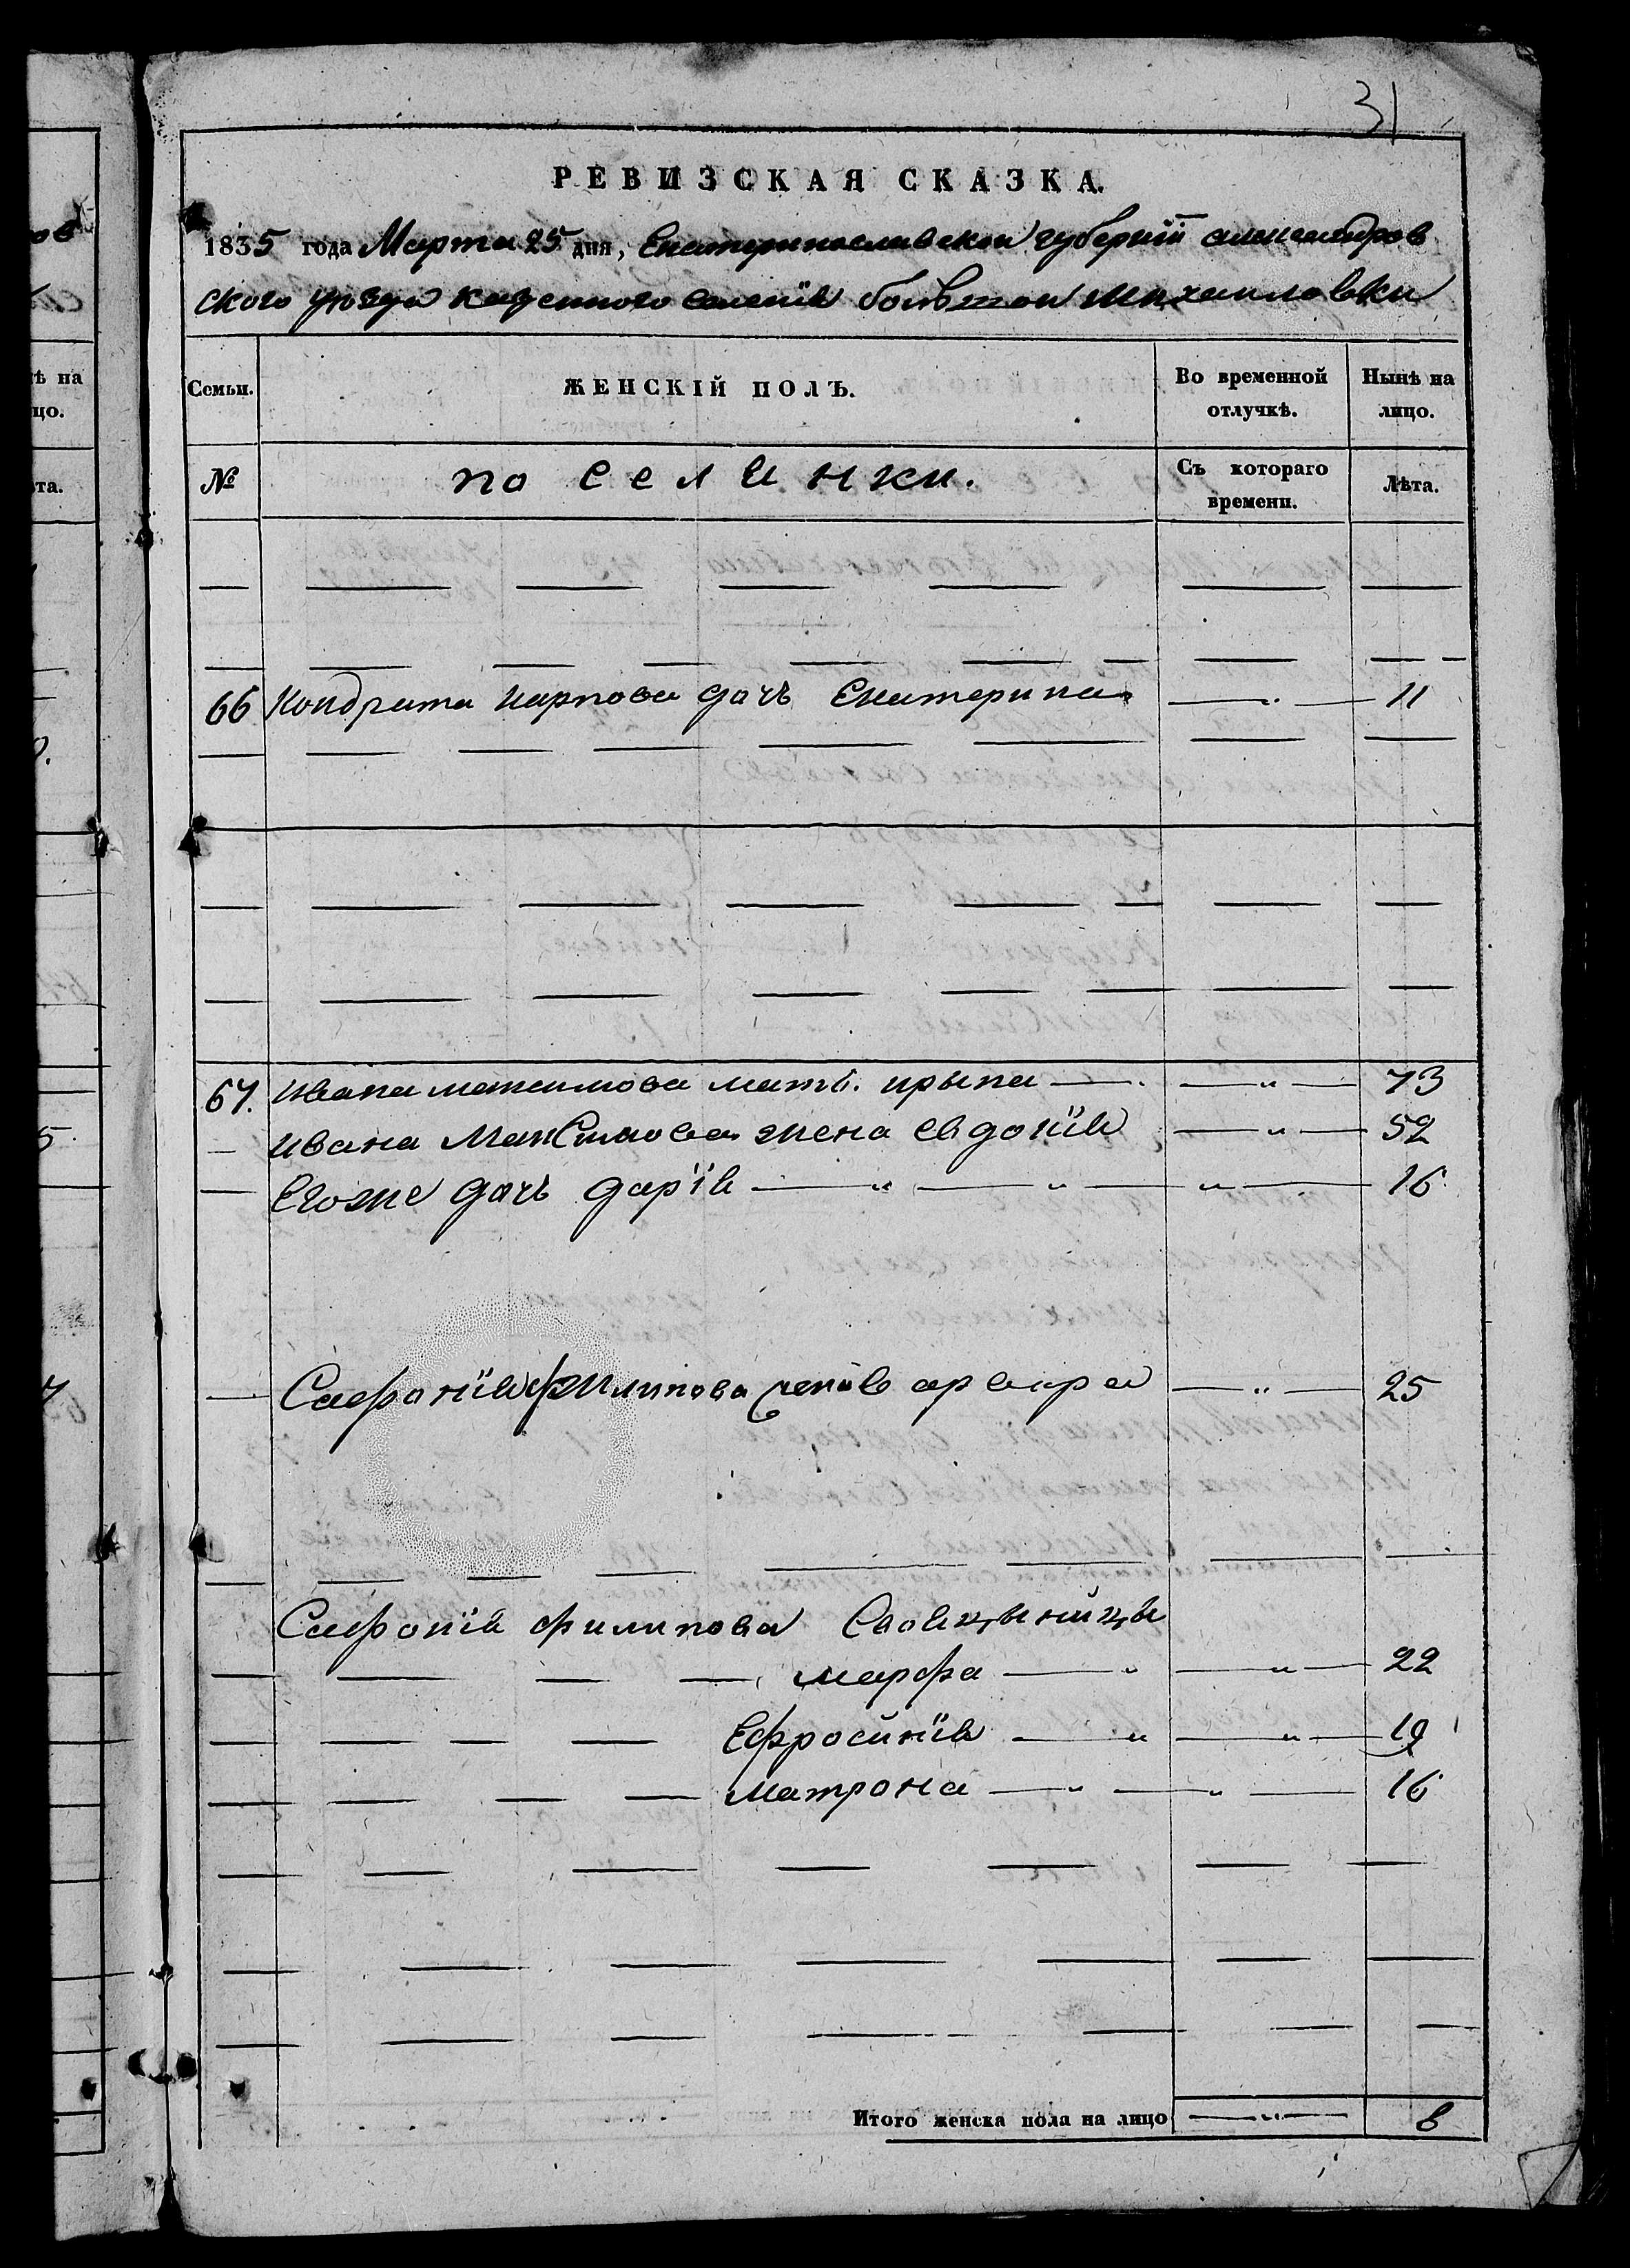 31
РЕВИЗСКАЯ СКАЗКА.
1835 года Марта 25 дня, Екатеринославской губернїи александров
ского уѣзда казенного селенїя большой михаиловки
Семьи. ЖЕНСКІЙ ПОЛЪ. Во временной отлучкѣ. Нынѣ на лицо.
№ поселянки. Съ котораго времени. Лѣта.
66 Кондрата карпова дочь Екатерина — „ — 11
67. ивана максимова мать. ирына — „ — 73
— ивана Максимова жена евдокїя — „ — 52
— Егоже дочь дарїя — „ — „ — „ — 16
— Сафонїя филипова варвара — „ — 25
Сафонїя филипова
марфа — „ — „ — 22
Ефросинїя — „ — „ — 19
матрона — „ — „ — 16
Итого женска пола на лицо — „ — 8
ѣ на
цо.
та.